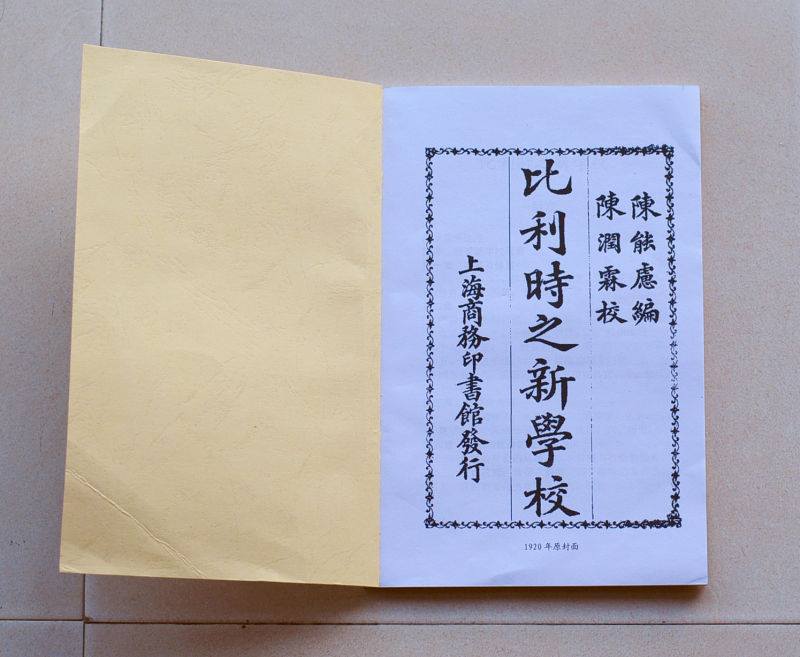 陳能慮編
陳潤霖校
比利時之新學校
上海商務印書館發行
1920年原封面